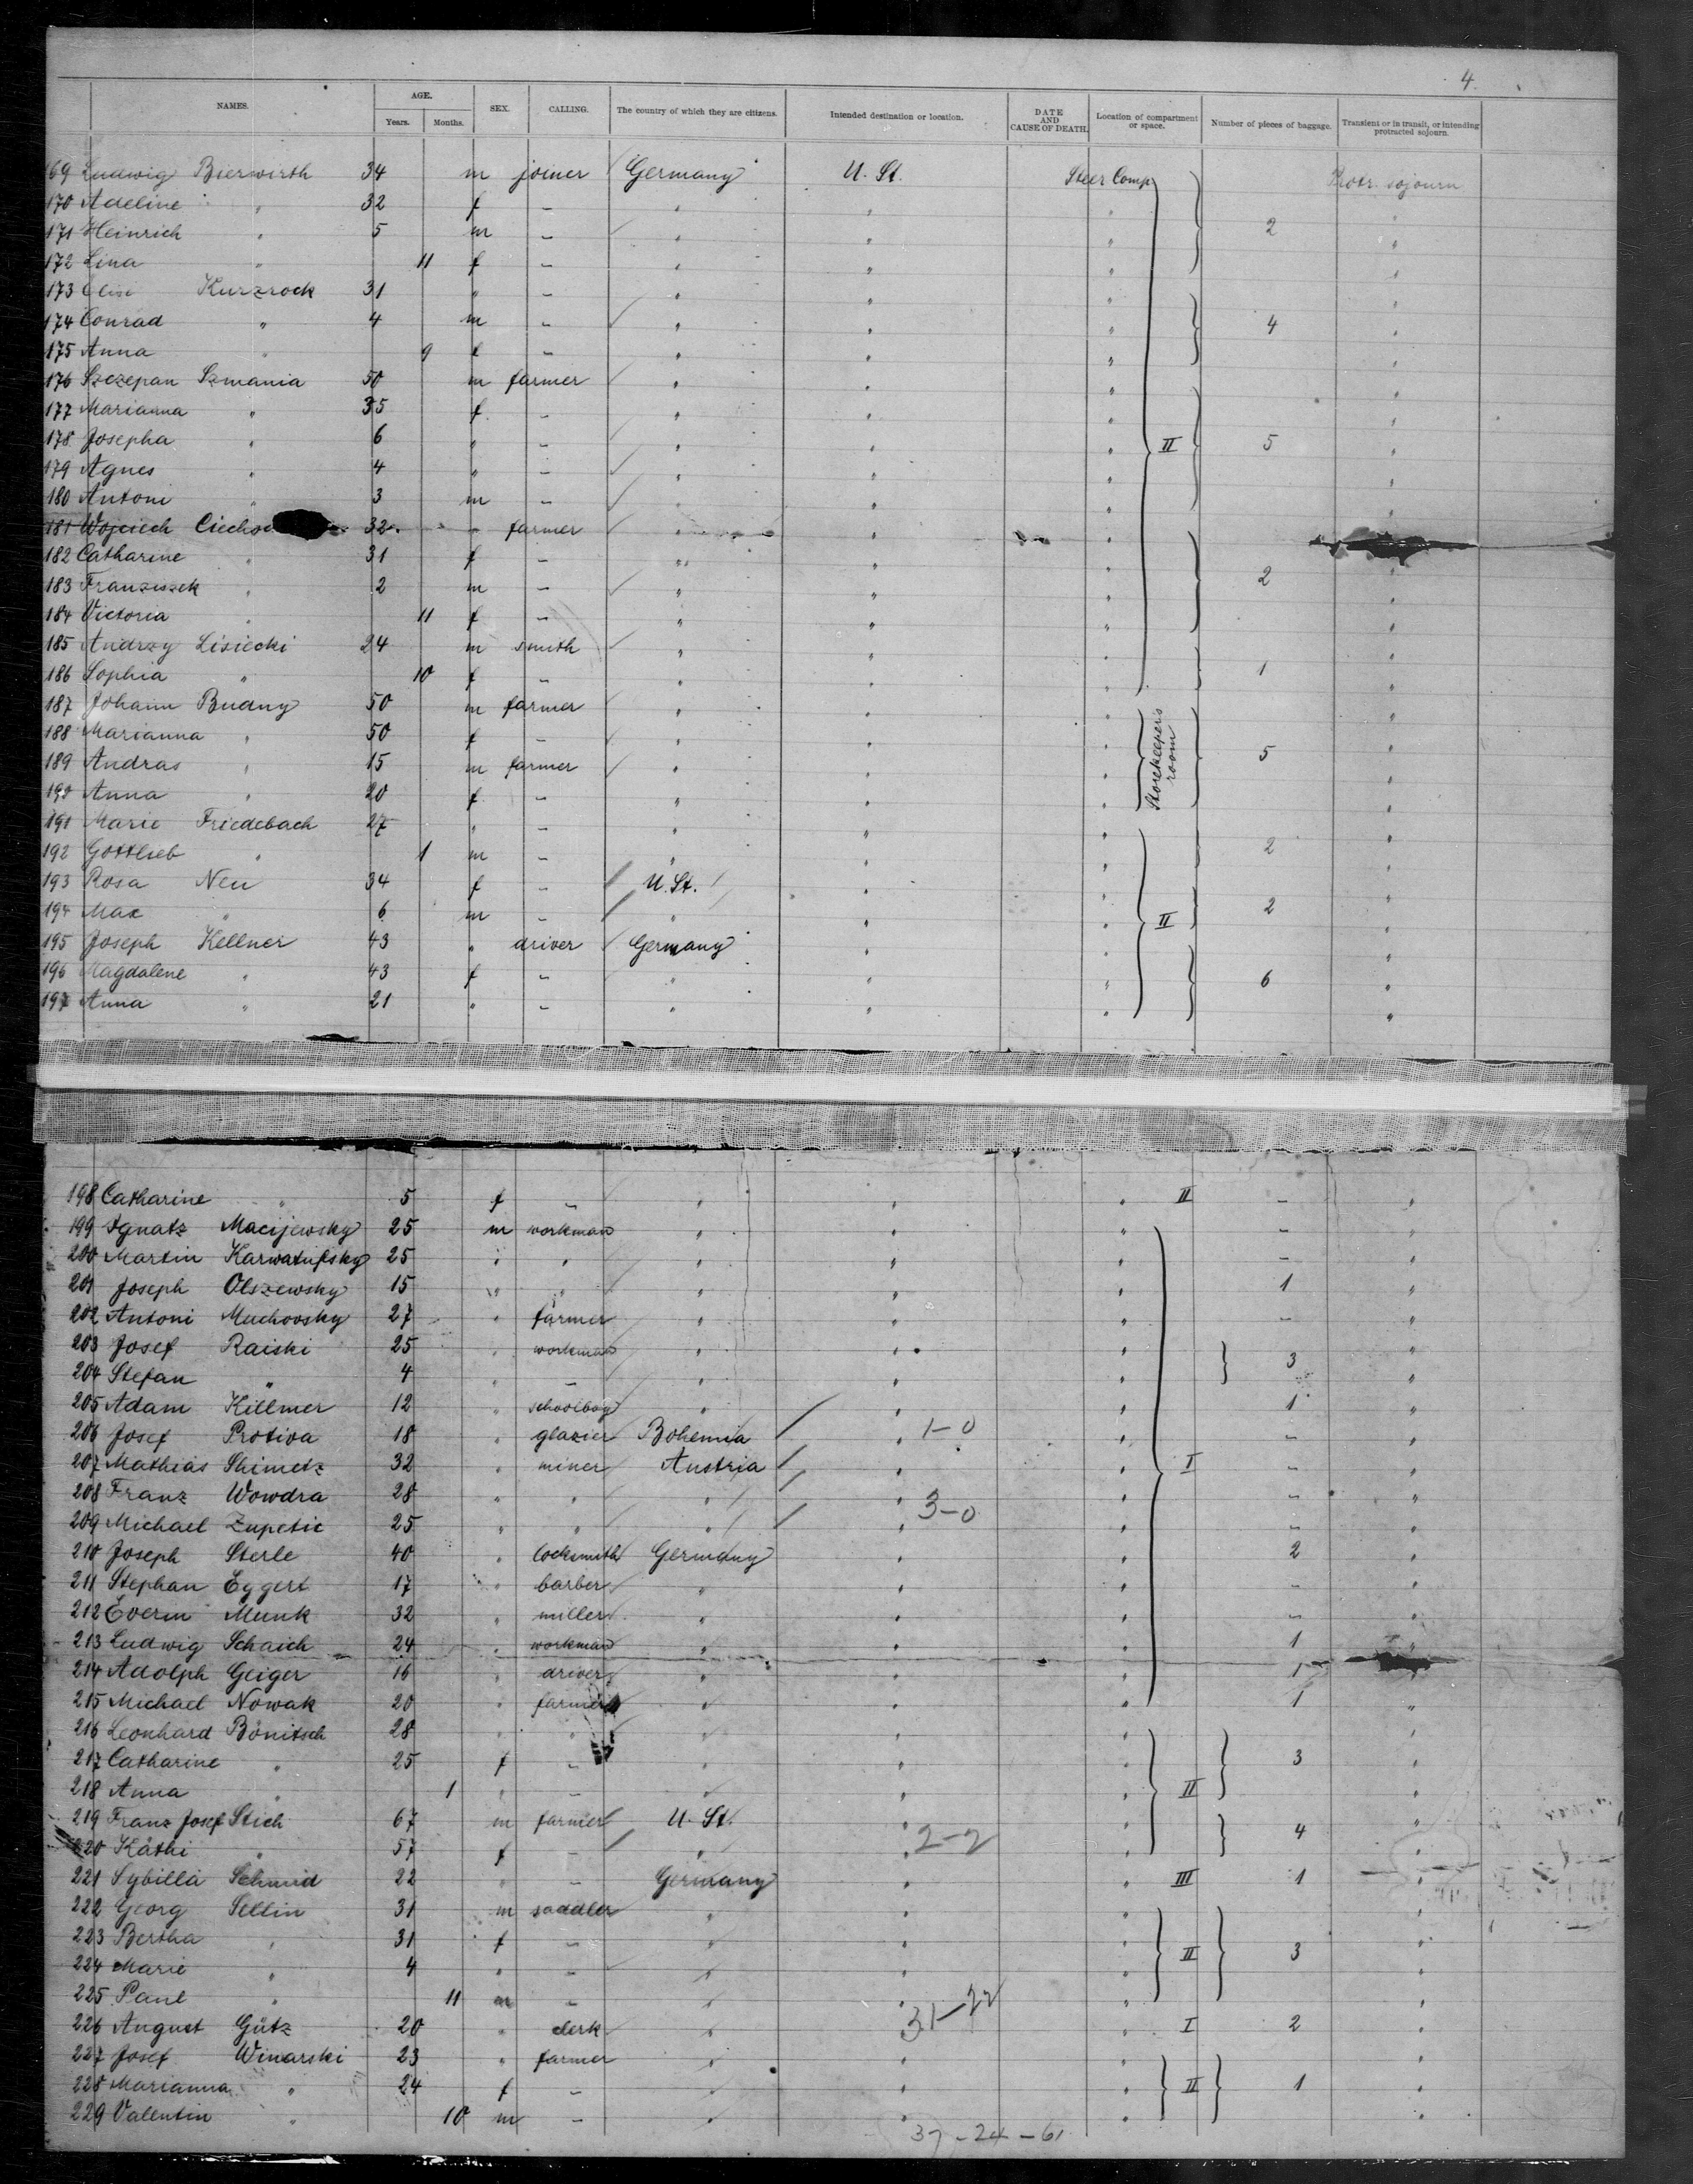 4.
NAMES. AGE. Years. Months. SEX. CALLING. The country of which they are citizens. Intended destination or location. DATE AND CAUSE OF DEATH. Location of compartment or space. Number of pieces of baggage. Transient or in transit, or intending protracted sojourn.
169 Ludwig Bierwirth 34 m joiner Germany U. St. Steer Comp Protr. sojourn
170 Adeline " 32 f - " " " "
171 Heinrich " 5 m - " " " 2 "
172 Lina " 11 f - " " " "
173 Elise Kurzrock 31 " - " " " "
174 Conrad " 4 m - " " " 4 "
175 Anna " 9 f - " " " "
176 Szczepan Szmania 50 m farmer " " " "
177 Marianna " 35 f - " " " "
178 Josepha " 6 " - " " " II 5 "
179 Agnes " 4 " - " " " "
180 Antoni " 3 m - " " " "
181 Wojciech 32 - farmer " " "
182 Catharine " 31 f - " " " "
183 Franziszek " 2 m - " " " 2 "
184 Victoria " 11 f - " " " "
185 Andrzy Lisiecki 24 m smith " " " "
186 Sophia " 10 f - " " " 1 "
187 Johann Budny 50 m farmer " " " Storekeeper's room "
188 Marianna " 50 f - " " " "
189 Andras " 15 m farmer " " " 5 "
190 Anna " 20 f - " " " "
191 Marie Friedebach 27 " - " " " "
192 Gottlieb " 1 m - " " " 2 "
193 Rosa Neu 34 f - U. St. " " "
194 Max " 6 m - " " " II 2 "
195 Joseph Kellner 43 " driver Germany " " "
196 Magdalene " 43 f - " " " 6 "
197 Anna " 21 " - " " " "
198 Catharine " 5 f - " " " II - "
199 Ignatz Macijewsky 25 m workman " " " - "
200 Martin 25 " " " " " - "
201 Joseph Olszewsky 15 " " " " " 1 "
202 Antoni Muchovsky 27 " farmer " " " - "
203 Josef Raiski 25 " workman " " " 3 "
204 Stefan " 4 " - " " " "
205 Adam Killmer 12 " schoolboy " " " 1 "
206 Josef Protiva 18 " glazier Bohemia " 1-0 " - "
207 Mathias Shimetz 32 " miner Austria " " I - "
208 Franz Wowdra 28 " " " " " - "
209 Michael Zupetic 25 " " " " 3-0 " - "
210 Joseph Sterle 40 " locksmith Germany " " 2 "
211 Stephan Eggert 17 " barber " " " - "
212 Everin Munk 32 " miller " " " - "
213 Ludwig Schaich 24 " workman " " " 1 "
214 Adolph Geiger 16 " driver " " " 1 "
215 Michael Nowak 20 " farmer " " " 1 "
216 Leonhard Bönitsch 28 " " " " " "
217 Catharine " 25 f - " " " 3 "
218 Anna " 1 " - " " " II "
219 Franz Josef Stich 67 m farmer U. St. " " 4 "
220 Käthi " 57 f - " " 2-2 " "
221 Sybilla Schmid 22 " - Germany " " III 1 "
222 Georg Sellin 31 m saddler " " " "
223 Bertha " 31 f - " " " II 3 "
224 Marie " 4 " - " " " "
225 Paul " 11 m - " " " "
226 August Götz 20 " clerk " " 31-22 " I 2 "
227 Josef Winarski 23 " farmer " " " "
228 Marianna " 24 f - " " " II 1 "
229 Valentin " 10 m - " " " "
37-24-61